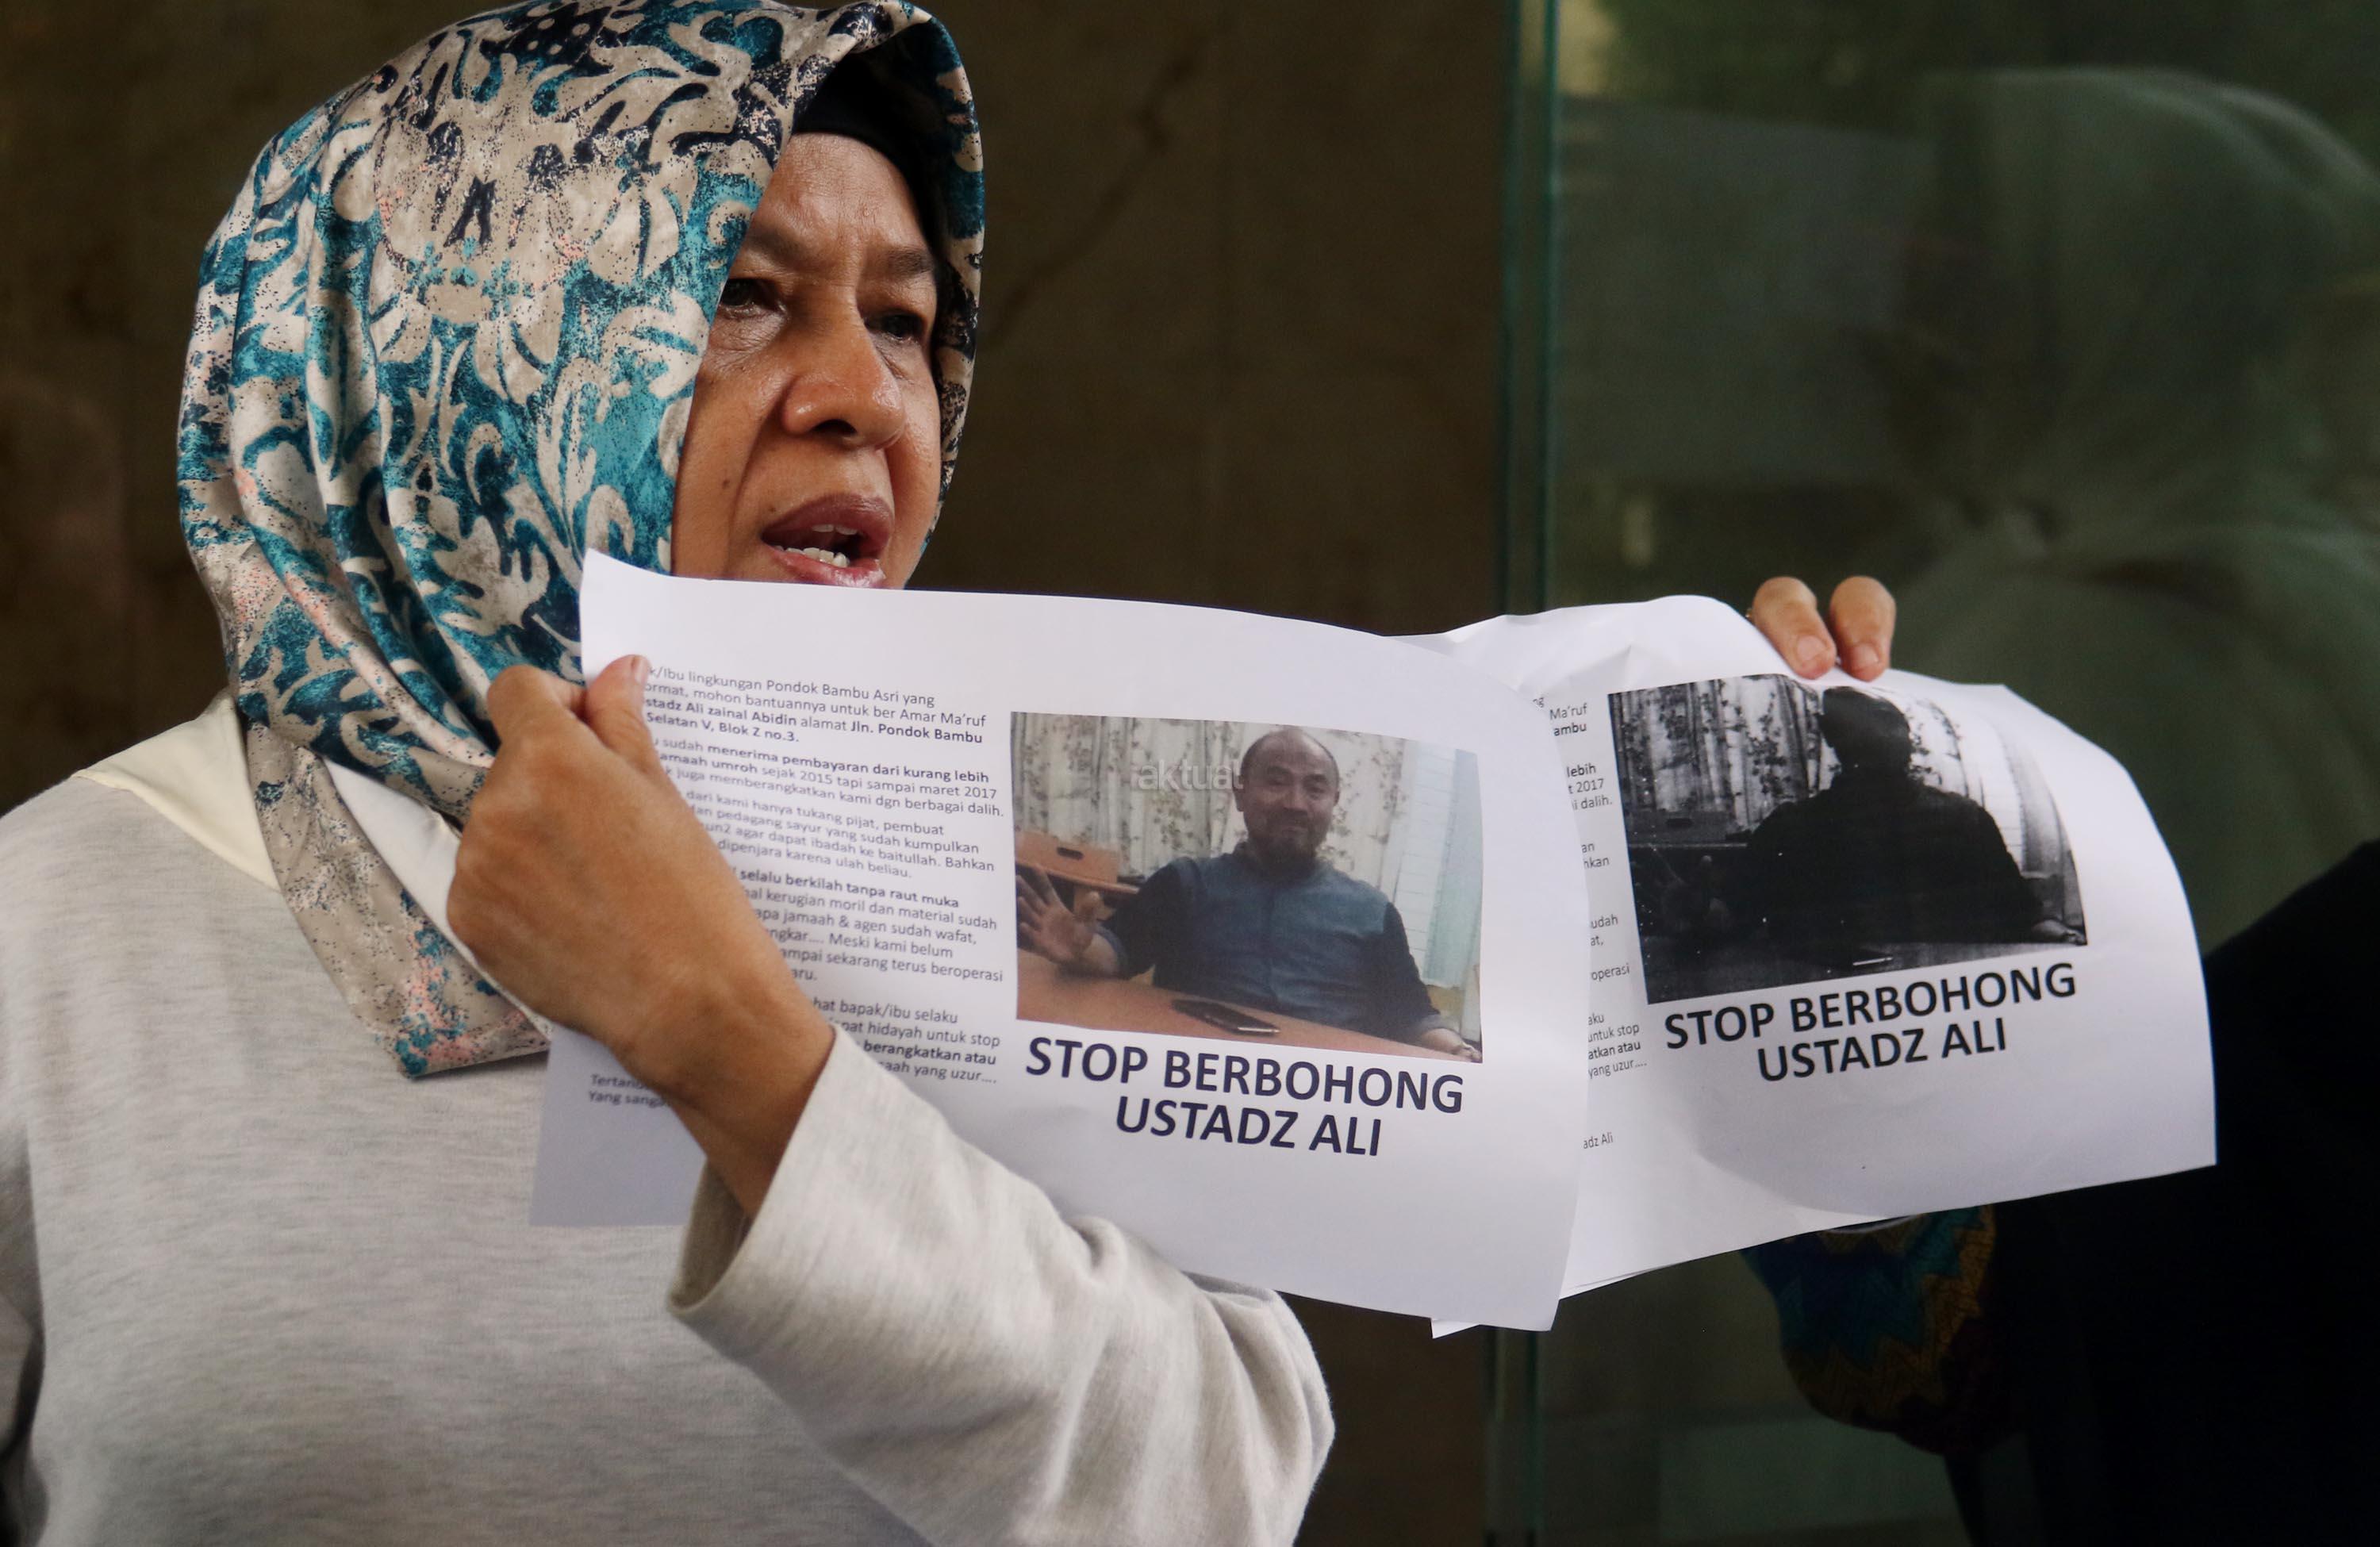 k/Ibu lingkungan Pondok Bambu Asri yang
ormat, mohon bantuannya untuk ber Amar Ma'ruf
stadz Ali zainal Abidin alamat Jln. Pondok Bambu
Selatan V, Blok Z no.3.
u sudah menerima pembayaran dari kurang lebih
amaah umroh sejak 2015 tapi sampai maret 2017
k juga memberangkatkan kami dgn berbagai dalih.
dari kami hanya tukang pijat, pembuat
an pedagang sayur yang sudah kumpulkan
un2 agar dapat ibadah ke baitullah. Bahkan
dipenjara karena ulah beliau.
selalu berkilah tanpa raut muka
al kerugian moril dan material sudah
apa jamaah & agen sudah wafat,
ngkar.... Meski kami belum
mpai sekarang terus beroperasi
aru.
hat bapak/ibu selaku
pat hidayah untuk stop
berangkatkan atau
aah yang uzur....
Tertan
Yang sanga
aktual
STOP BERBOHONG
USTADZ ALI
ng
Ma'ruf
ambu
lebih
t 2017
i dalih.
an
hkan
udah
at,
operasi
aku
untuk stop
atkan atau
yang uzur....
adz Ali
STOP BERBOHONG
USTADZ ALI